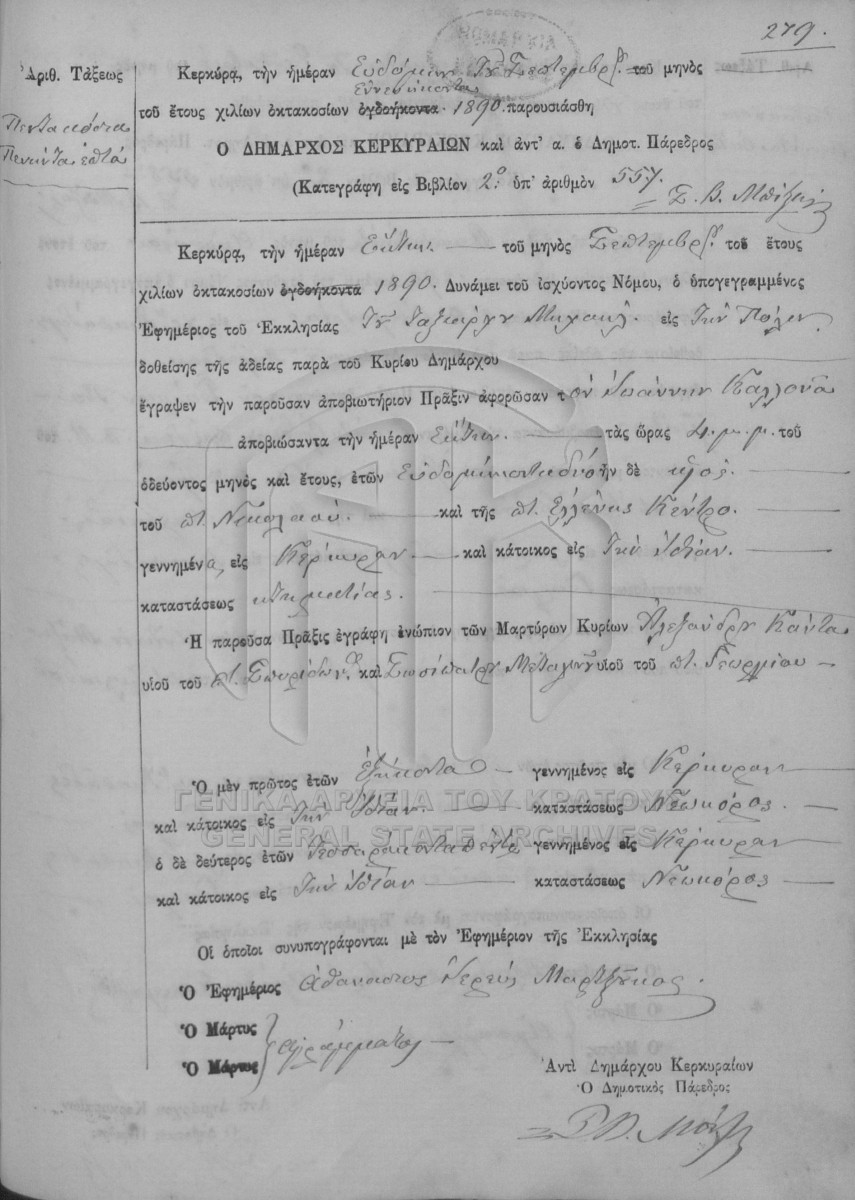 279.
Ἀριθ. Τάξεως
Πεντακόσια
Πενῆντα ἑπτά
Κερκύρα, τὴν ἡμέραν Ἑβδόμην τοῦ Σεπτεμβρ. τοῦ μηνὸς
Ἐννενήκοντα
τοῦ ἔτους χιλίων ὀκτακοσίων ὀγδοήκοντα 1890 παρουσιάσθη
Ο ΔΗΜΑΡΧΟΣ ΚΕΡΚΥΡΑΙΩΝ καὶ ἀντ' α. ὁ Δημοτ. Πάρεδρος
(Κατεγράφη εἰς Βιβλίον 2ον ὑπ' ἀριθμὸν 557.
Κερκύρα, τὴν ἡμέραν Ἕκτην τοῦ μηνὸς Σεπτεμβρ. τοῦ ἔτους
χιλίων ὀκτακοσίων ὀγδοήκοντα 1890. Δυνάμει τοῦ ἰσχύοντος Νόμου, ὁ ὑπογεγραμμένος
Ἐφημέριος τοῦ Ἐκκλησίας Τοῦ Ταξιάρχου Μιχαήλ. εἰς Τὴν Πόλιν
δοθείσης τῆς ἀδείας παρὰ τοῦ Κυρίου Δημάρχου
ἔγραψεν τὴν παροῦσαν ἀποβιωτήριον Πρᾶξιν ἀφορῶσαν τὸν Ἰωάννην Καλλονᾶ
ἀποβιώσαντα τὴν ἡμέραν Ἕκτην. τὰς ὥρας 4. μ. μ. τοῦ
ὁδεύοντος μηνὸς καὶ ἔτους, ἐτῶν Ἑβδομηκονταδύο ἦν δὲ υἱός.
τοῦ πτ. Νικολάου. καὶ τῆς πτ. Ἑλένης Κέντρο.
γεννημένα, εἰς Κέρκυραν καὶ κάτοικος εἰς Τὴν Ἰδίαν.
καταστάσεως κτηματίας.
Ἡ παροῦσα Πρᾶξις ἐγράφη ἐνώπιον τῶν Μαρτύρων Κυρίων Ἀλεξάνδρου Κάντα
υἱοῦ τοῦ πτ. Σπυρίδων. καὶ Σωσίπατρου υἱοῦ τοῦ πτ. Γεωργίου
Ὁ μὲν πρῶτος ἐτῶν Ἑξήκοντα γεννημένος εἰς Κέρκυραν
ΓΕΝΙΚΑ ΑΡΧΕΙΑ ΤΟΥ ΚΡΑΤΟΥΣ
καὶ κάτοικος εἰς Τὴν Ἰδίαν. καταστάσεως Νεωκόρος.
GENERAL STATE ARCHIVES
ὁ δὲ δεύτερος ἐτῶν Τεσσαρακονταπέντε γεννημένος εἰς Κέρκυραν
καὶ κάτοικος εἰς Τὴν Ἰδίαν καταστάσεως Νεωκόρος
Οἱ ὁποῖοι συνυπογράφονται μὲ τὸν Ἐφημέριον τῆς Ἐκκλησίας
Ὁ Ἐφημέριος Ἀθανάσιος Ἱερεὺς Μαρτζοῦκος.
Ὁ Μάρτυς
ἀγράμματοι
Ὁ Μάρτυς
Ἀντὶ Δημάρχου Κερκυραίων
Ὁ Δημοτικὸς Πάρεδρος